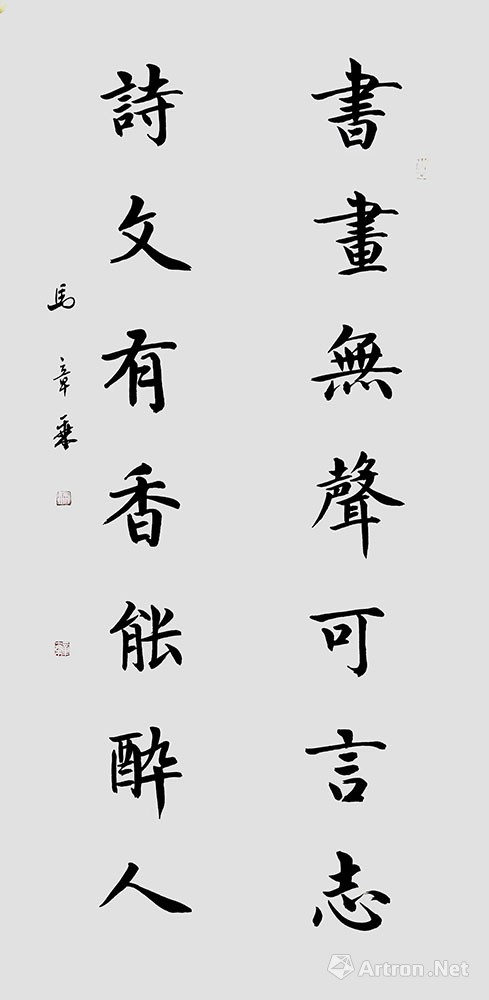 書畫無聲可言志
詩文有香能醉人
馬章乘
Artron.Net